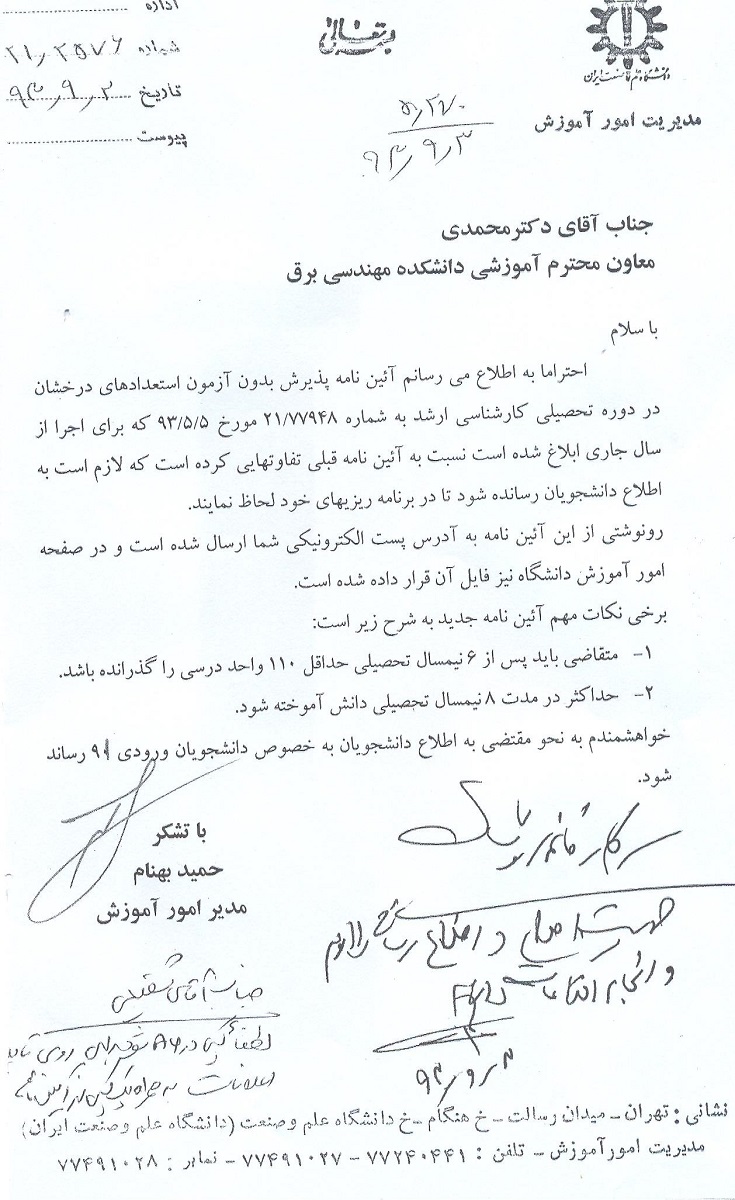 اداره
شماره ۲۱٫۲۵۷۶
تاریخ ۹۳٫۹٫۲
پیوست
دانشگاه علم و صنعت ایران
مدیریت امور آموزش
۵٫۲۷۰
۹۳٫۹٫۳
جناب آقای دکترمحمدی
معاون محترم آموزشی دانشکده مهندسی برق
با سلام
احتراما به اطلاع می رسانم آئین نامه پذیرش بدون آزمون استعدادهای درخشان
در دوره تحصیلی کارشناسی ارشد به شماره ۲۱/۷۷۹۴۸ مورخ ۹۳/۵/۵ که برای اجرا از
سال جاری ابلاغ شده است نسبت به آئین نامه قبلی تفاوتهایی کرده است که لازم است به
اطلاع دانشجویان رسانده شود تا در برنامه ریزیهای خود لحاظ نمایند.
رونوشتی از این آئین نامه به آدرس پست الکترونیکی شما ارسال شده است و در صفحه
امور آموزش دانشگاه نیز فایل آن قرار داده شده است.
برخی نکات مهم آئین نامه جدید به شرح زیر است:
۱- متقاضی باید پس از ۶ نیمسال تحصیلی حداقل ۱۱۰ واحد درسی را گذرانده باشد.
۲- حداکثر در مدت ۸ نیمسال تحصیلی دانش آموخته شود.
خواهشمندم به نحو مقتضی به اطلاع دانشجویان به خصوص دانشجویان ورودی ۹۱ رساند
شود.
با تشکر
حمید بهنام
مدیر امور آموزش
سرکار خانم
جهت و اطلاع رسانی
و انجام اقدامات
۹۳٫۹٫۳
جناب آقای
لطفا کپی در روی تابلو
اعلانات به همراه یک کپی از آئین نامه
نشانی: تهران - میدان رسالت - خ هنگام - خ دانشگاه علم وصنعت (دانشگاه علم وصنعت ایران)
مدیریت امورآموزش - تلفن : ۷۷۲۴۰۴۴۱ - ۷۷۴۹۱۰۲۷ - نمابر : ۷۷۴۹۱۰۲۸